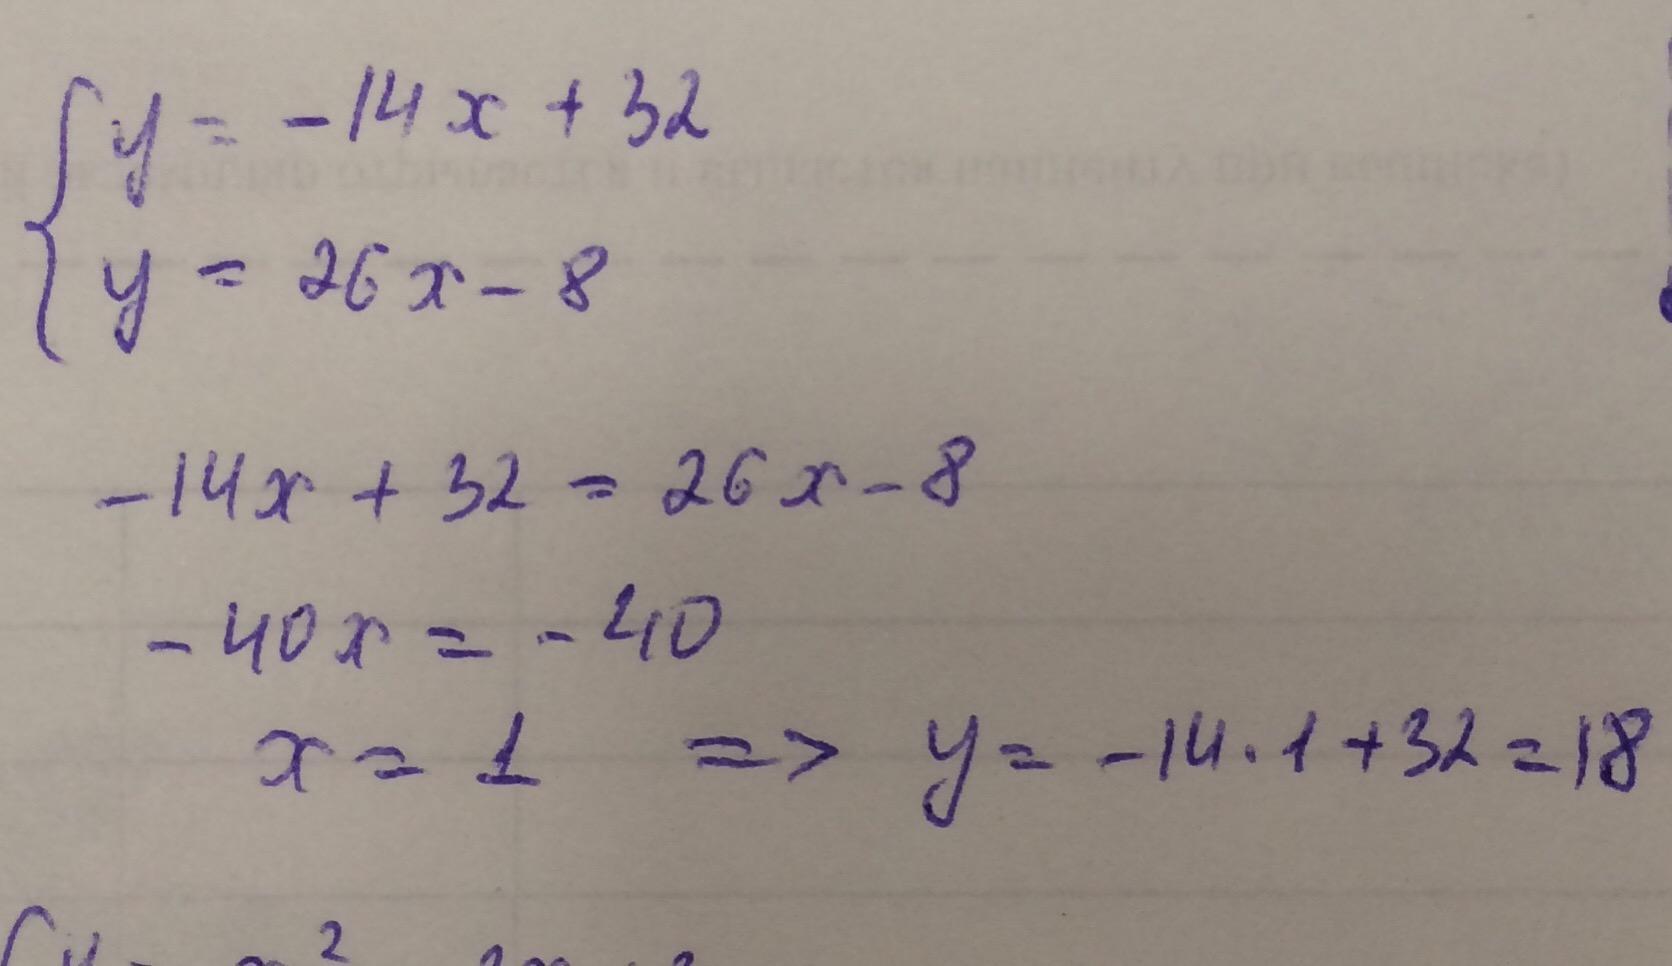 y = -14x + 32
y = 26x - 8
-14x + 32 = 26x - 8
-40x = -40
x = 1 => y = -14·1+32=18